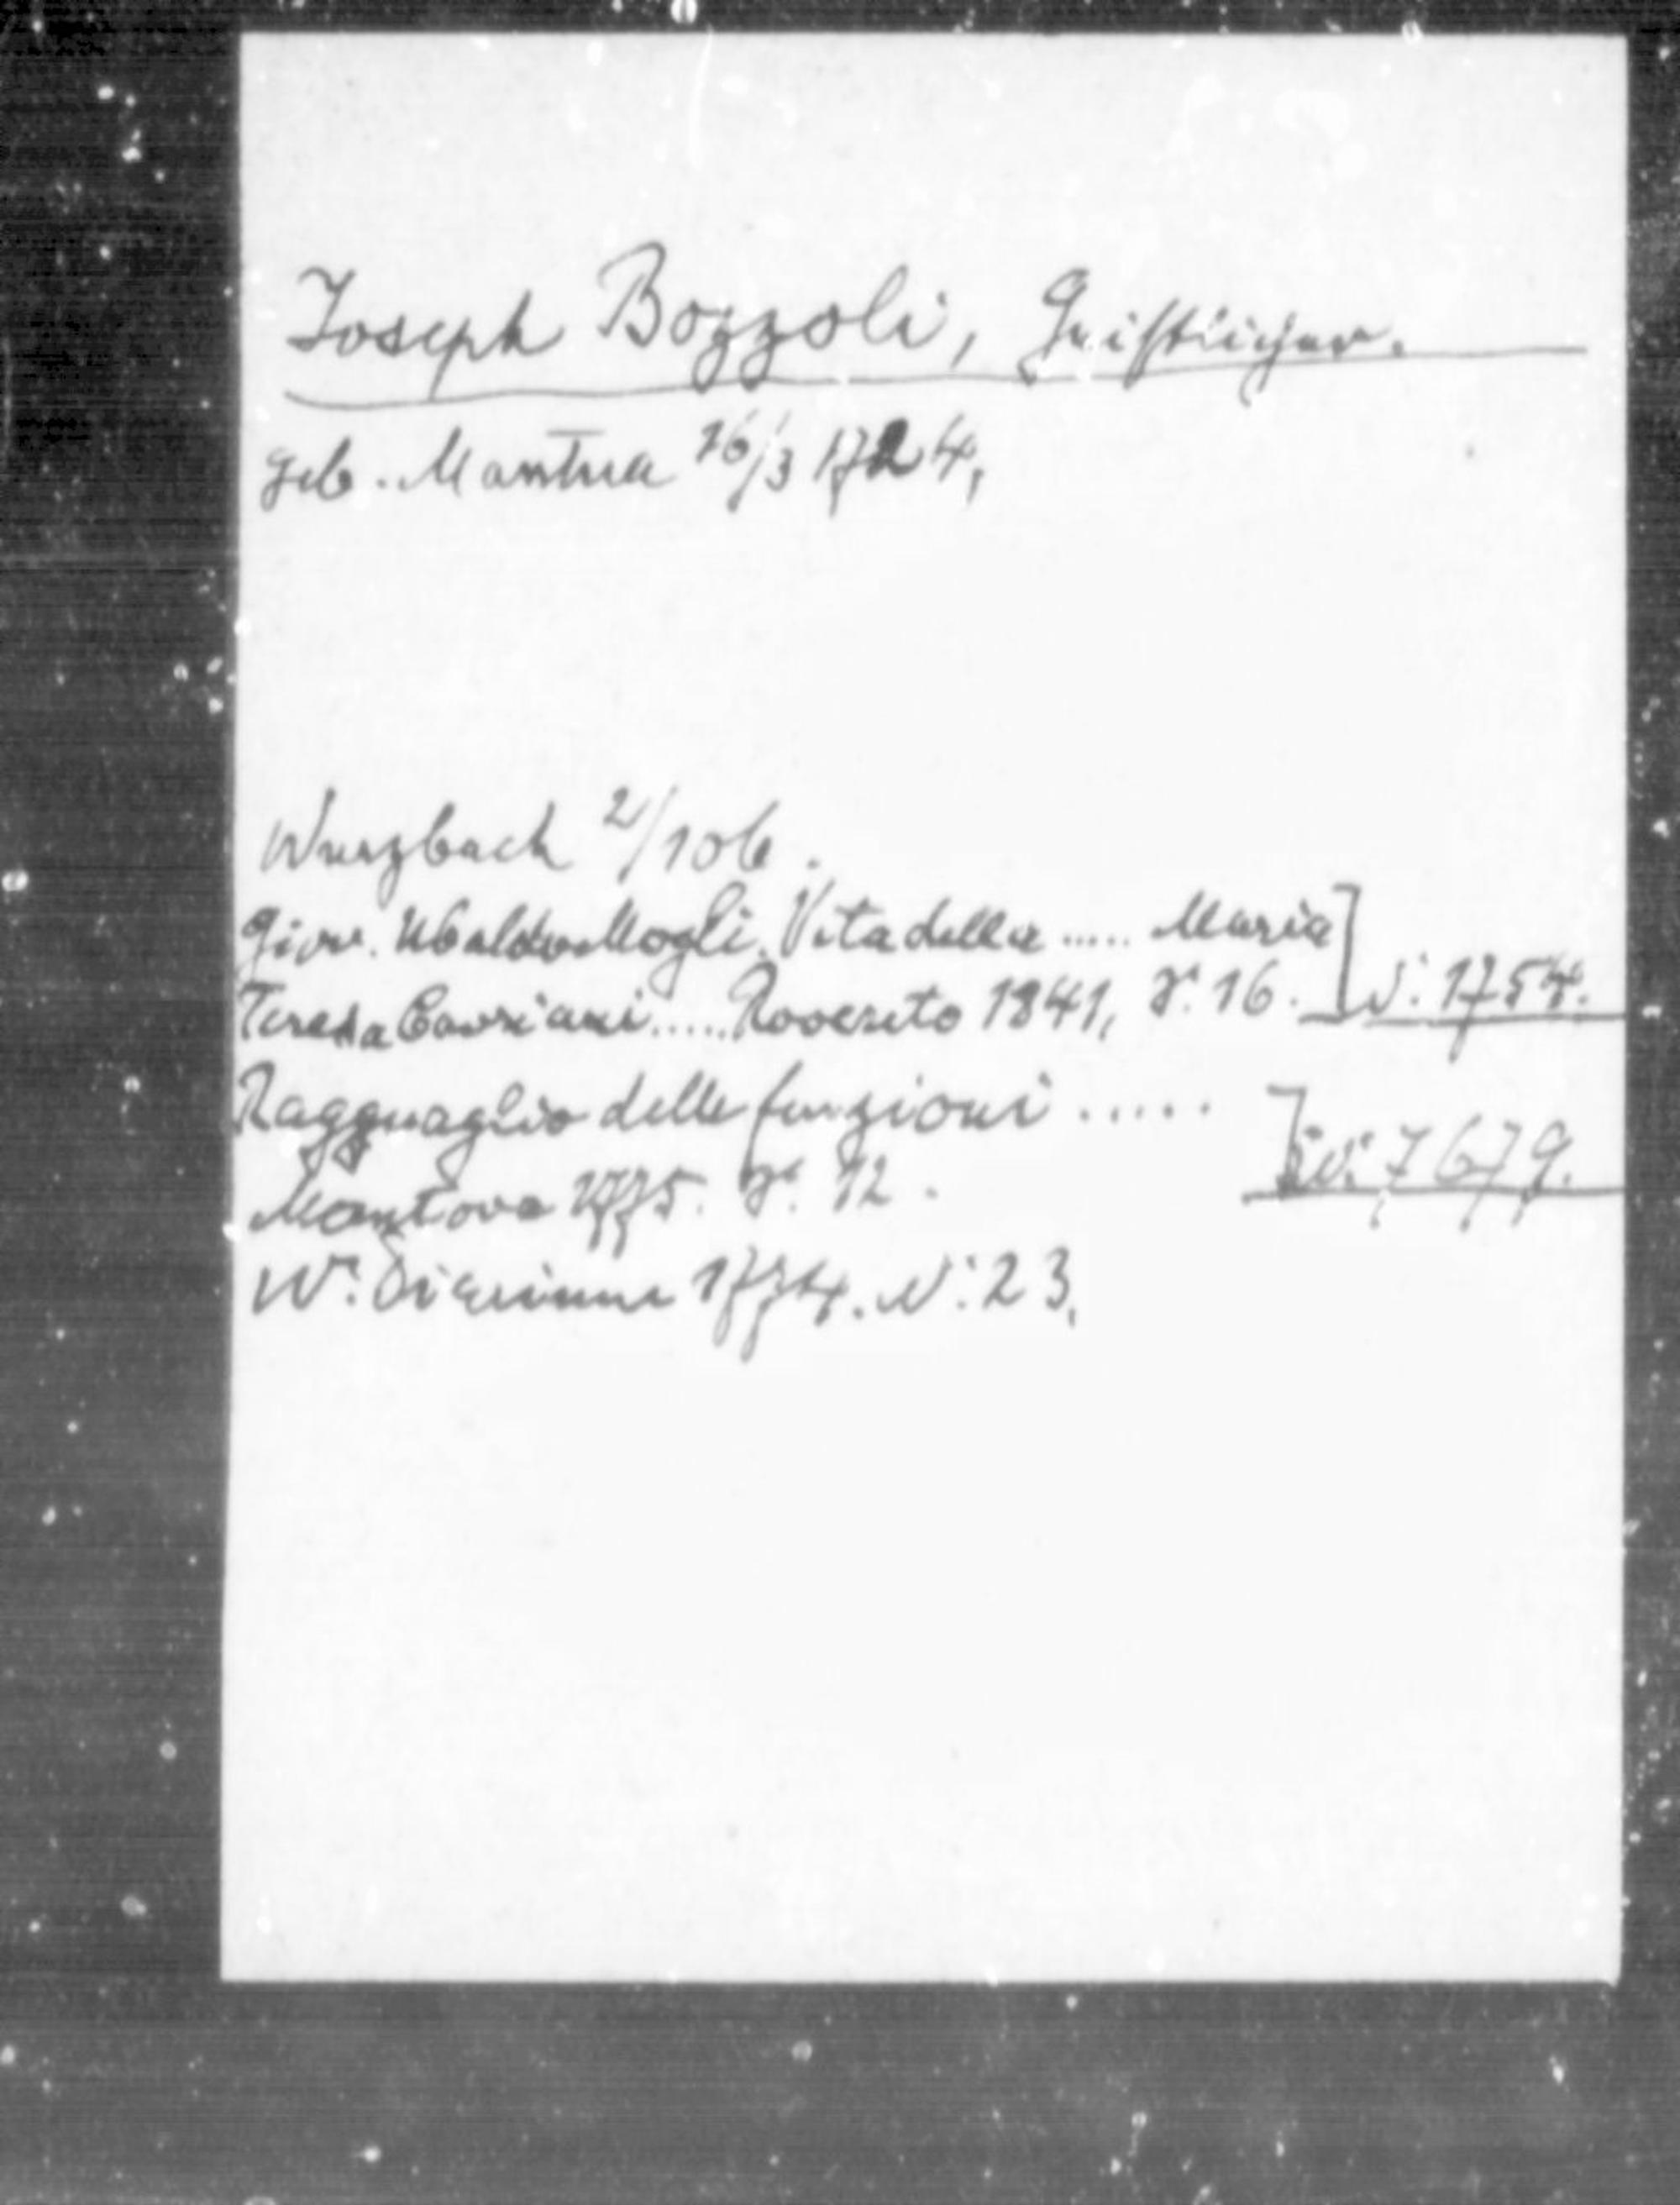 Joseph Bozzoli, Geistlicher.
geb. Mantua 16/3 1724,
Wurzbach 2/106.
Giov. Ubaldo Mogli. Vita della ..... Maria
Teresa Cavriani ..... Rovereto 1841, 8° 16. ] N: 1754.
Ragguaglio delle funzioni .....
Mantova 1775. 8° 12. ] N: 7679.
W. Diarium 1774. N: 23,